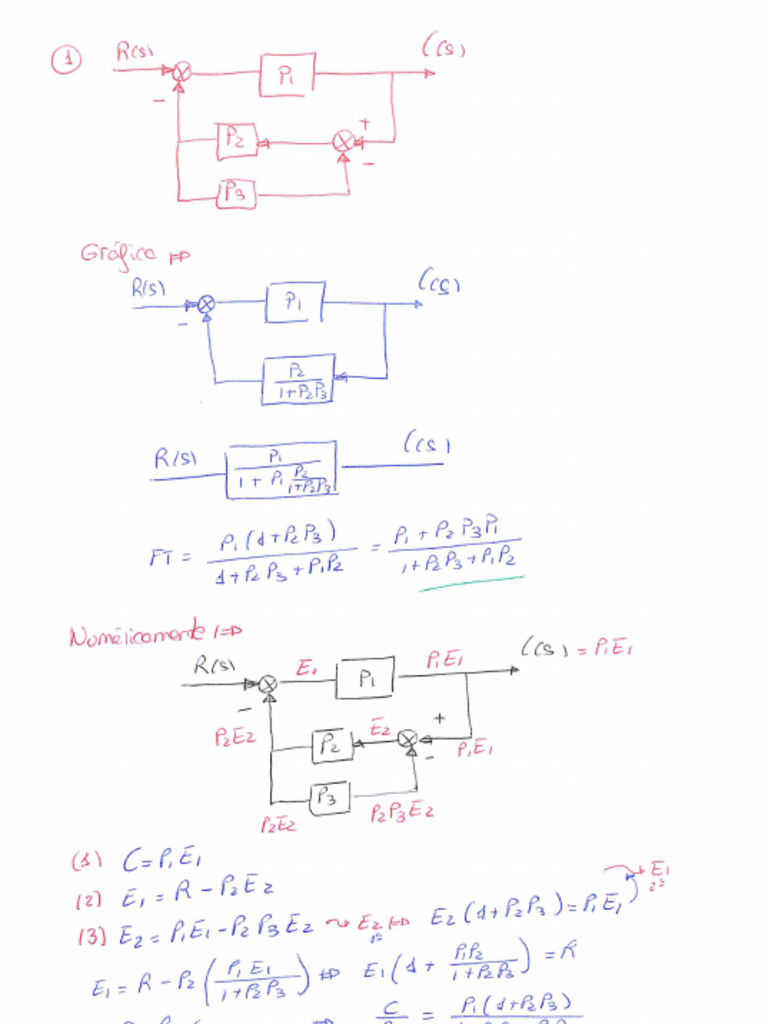 1
R(s) C(s)
P1
-
P2
+
-
P3
Gráfica ⇒
R(s) C(s)
P1
-
P2 / 1+P2P3
R(s) P1 / 1 + P1 P2 / 1+P2P3 C(s)
FT = P1 (1+P2P3) / 1+P2P3+P1P2 = P1 + P2P3P1 / 1+P2P3+P1P2
Numéricamente ⇒
R(s) E1 P1 P1E1 C(s) = P1E1
-
P2E2 P2 E2 + P1E1
-
P3
P2E2 P2P3E2
(1) C = P1E1
(2) E1 = R - P2E2
(3) E2 = P1E1 - P2P3E2 ⇝ E2 ⇔ E2 (1+P2P3) = P1E1 → E1
1º 2º
E1 = R - P2 (P1E1 / 1+P2P3) ⇒ E1 (1 + P1P2 / 1+P2P3) = R
⇒ C = P1 (1+P2P3)